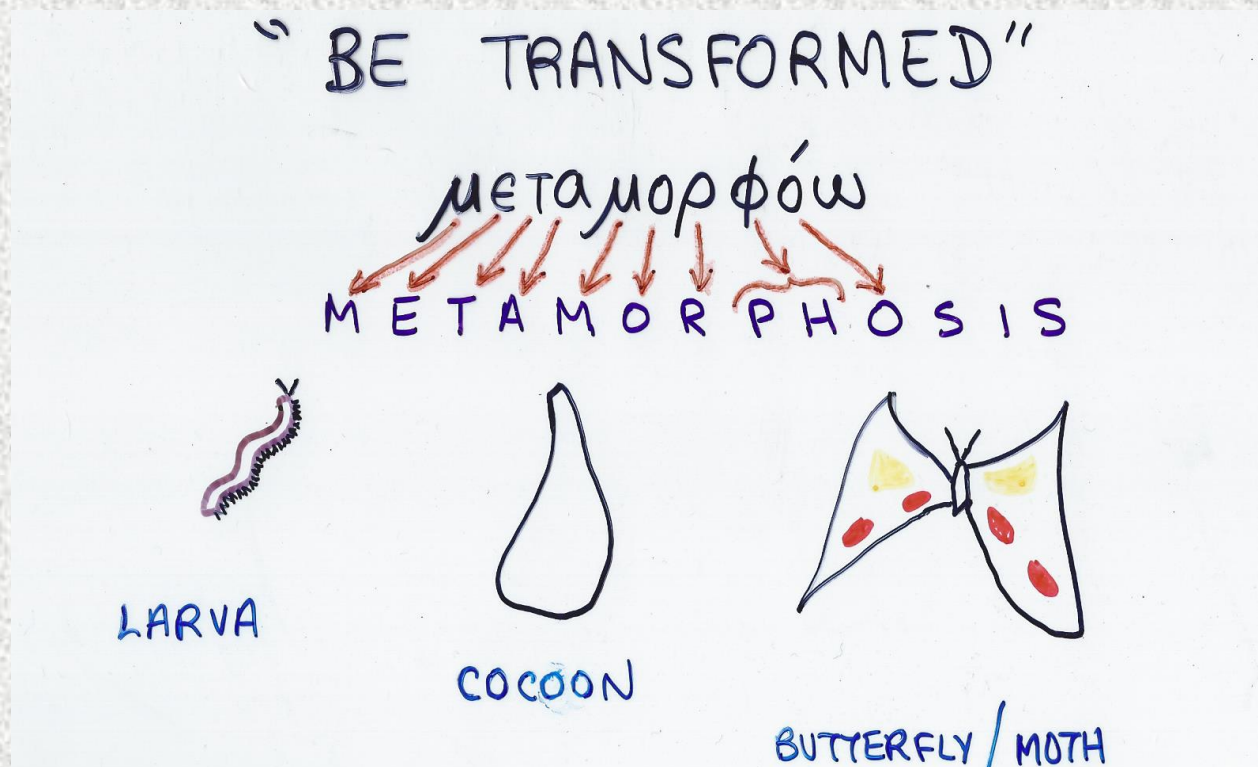 “BE TRANSFORMED”
μεταμορφόω
METAMORPHOSIS
LARVA
COCOON
BUTTERFLY/MOTH